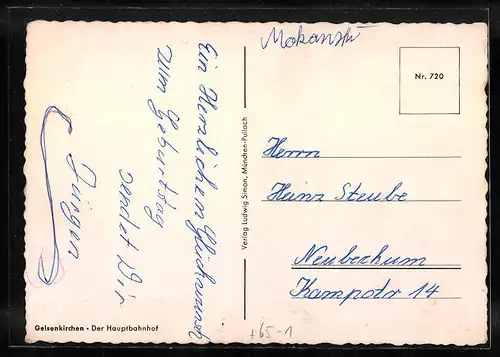 Ein Herzlichen Glückwunsch
zum Geburtstag
sendet Dir
Jürgen
Gelsenkirchen - Der Hauptbahnhof
Verlag Ludwig Simon, München-Pullach
Nr. 720
Herrn
Heinz Steube
Neubeckum
Kampstr 14
+65-1